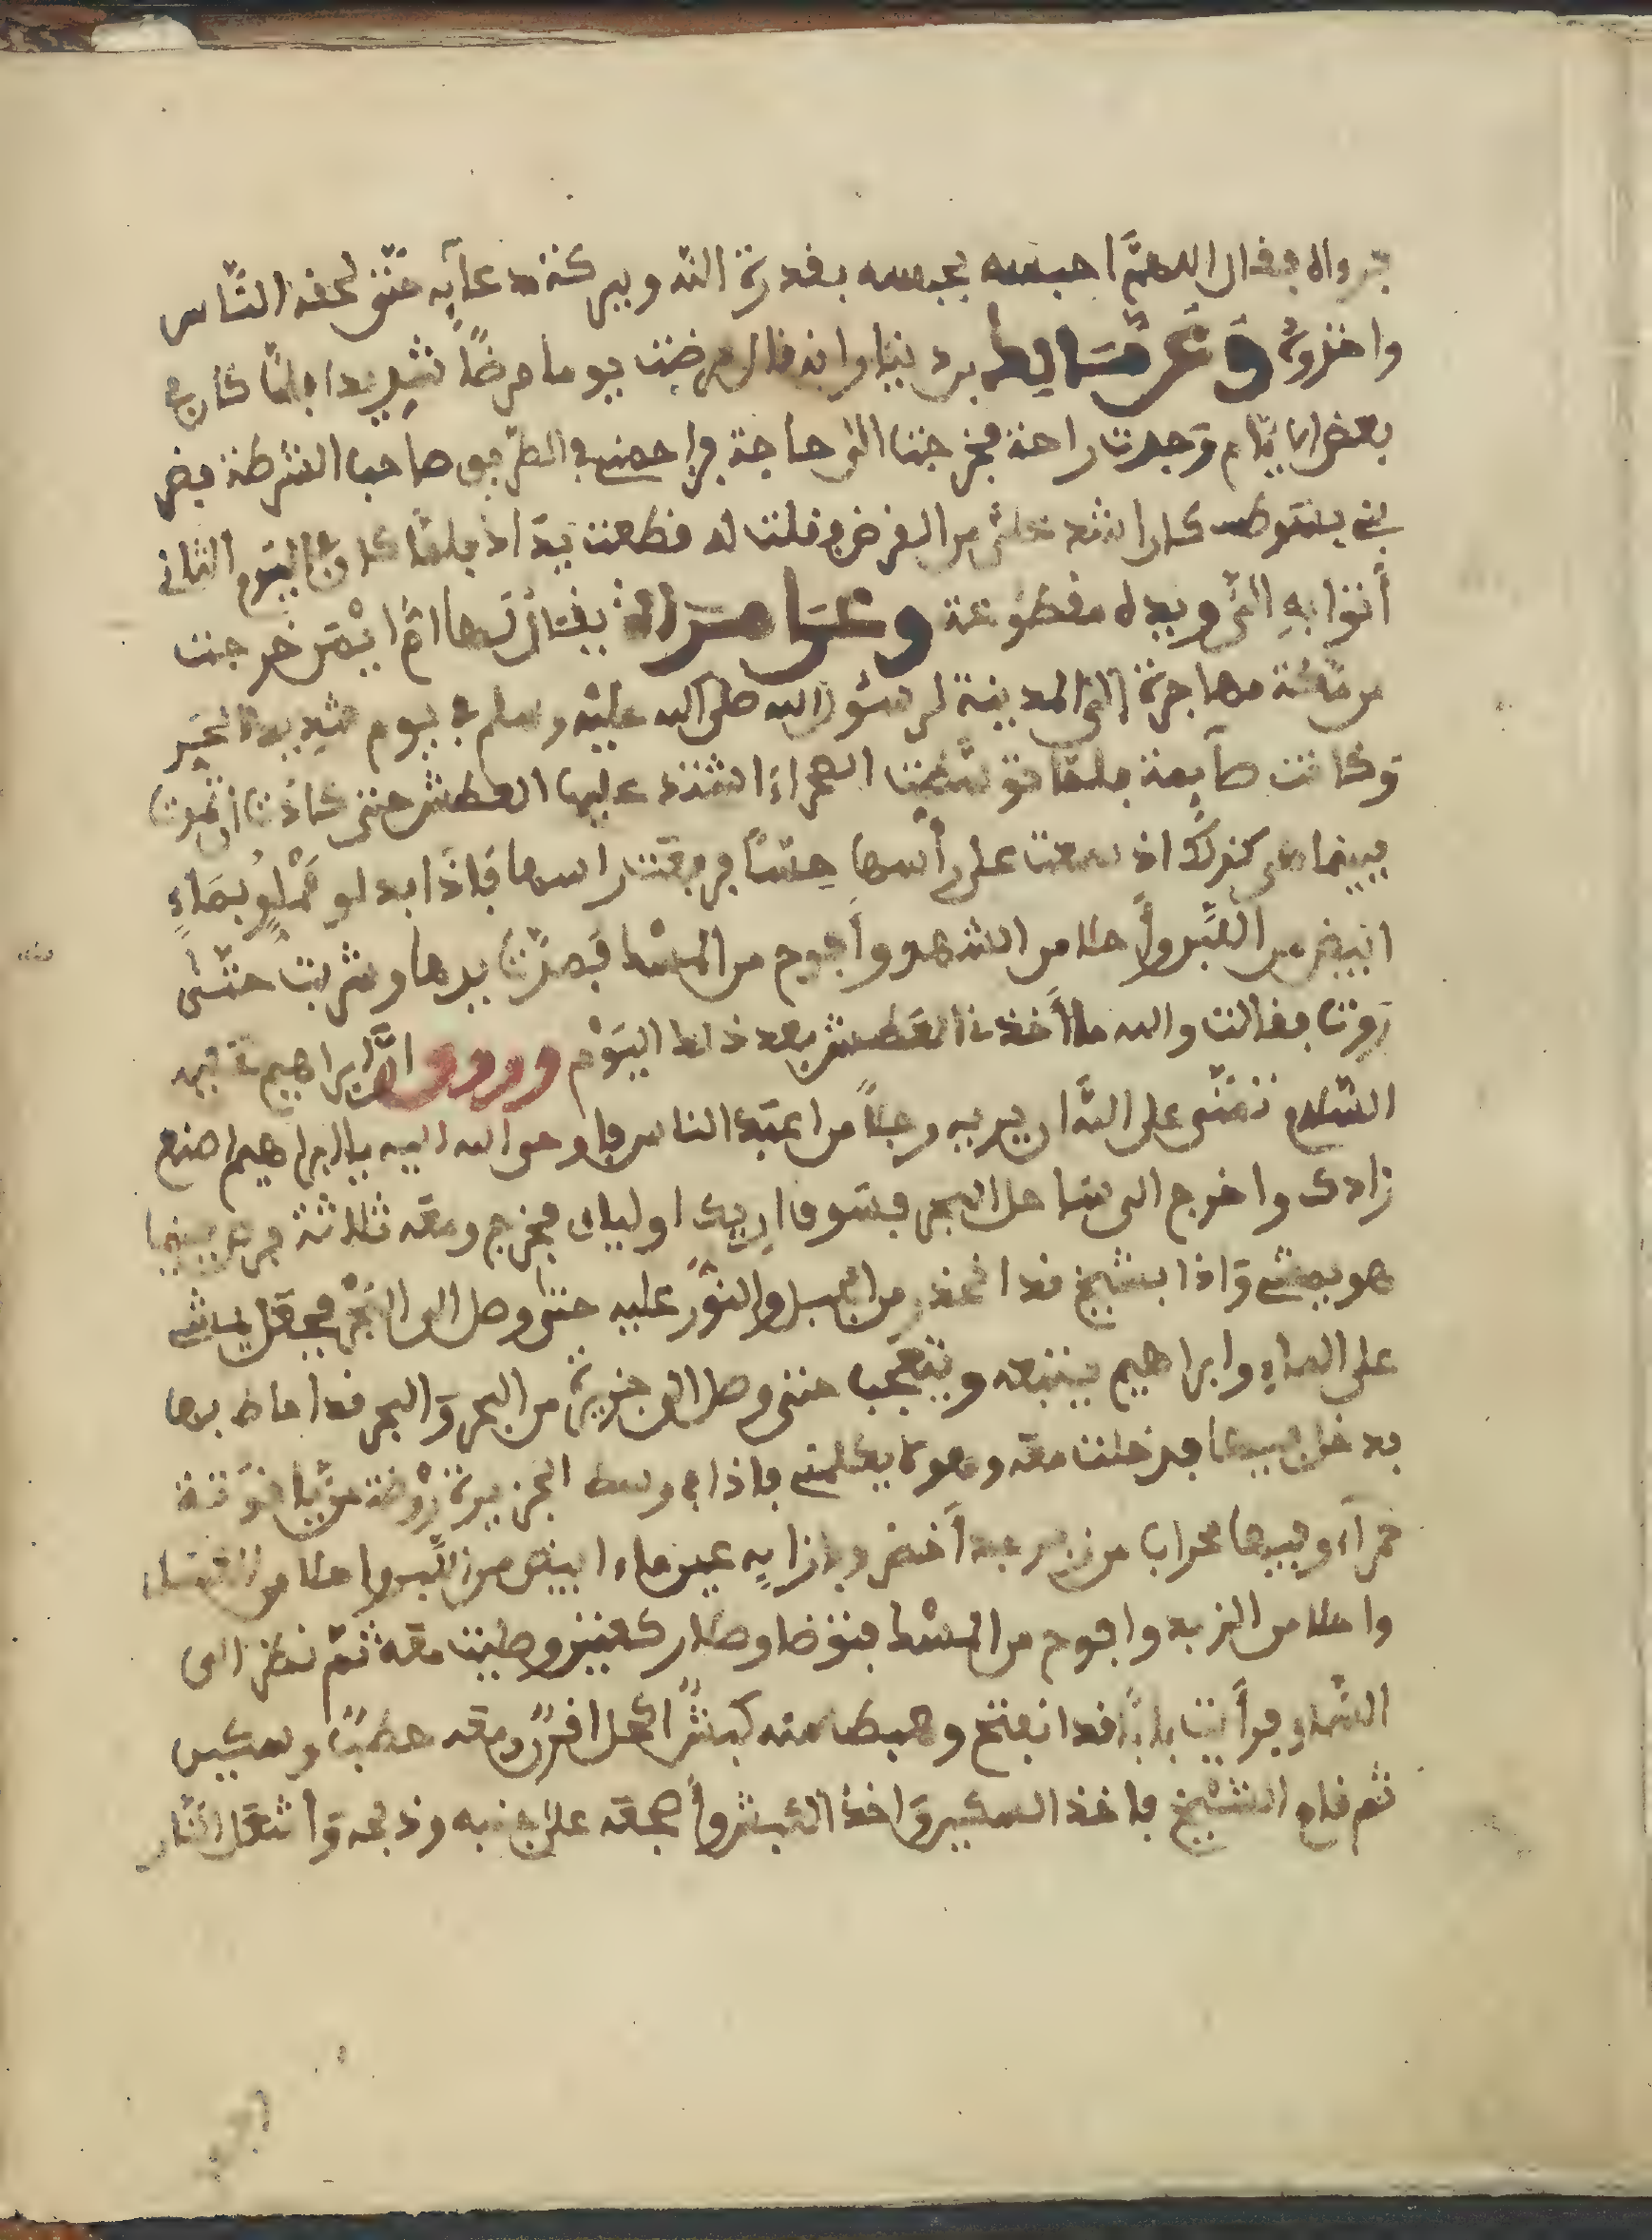 جرواله فقال اللهمَّ احبسه بحبسه بقدرة الله وببركة دعآيه حتّى لحقه النّاس
واخذوهُ وَعَن مَالِك بن دينار انه قال مرضت يوما مرضًا شديدا فلمّا كان في
بعض الايّام وجدت راحة فخرجت الى حاجة في الطريق صاحب الشرطة فضر
بني بسوط كان اشد علىّ من المرض فقلت له قطعت يداك فلمّا كان في اليوم الثاني
أتوا به الىّ ويده مقطوعة وعن امرَاة يقال لها امّ ايْمن خرجت
من مكّة مهاجرة الى المدينة لرسول الله صلى الله عليه وسلم في يوم شديد الحَر
وكانت صآيمة فلمّا توسّطت الصحراء اشتد عليها العطش حتى كادت ان تموت
فبينما هي كذلك اذ سمعت على رأسها حِسًّا فرفعت راسها فَاذَا بدلو مملُوٍ بمَاءٍ
ابيض من اللّبن وأحلا من الشهد وأفوح من المسْك فبصرت بدها وشربت حتّى
رَوِت فقالت والله ما أخذنى العَطش بعد ذلك اليَوْم وروى انَّ ابراهيم عليه
السّلام تمنّى على الله ان يريه رجلاً من اعبَد الناس فاوحى الله اليه يا ابراهيم اصنع
زادك واخرج الى ساحل البحر فسَوف اريك اوليائى فخرج ومعه ثلاثة فبينما
هو يمشى وَاذا بشيخ قد انحدر من الجبل والنّور عليه حتى وصل الى البَحْر فجعَل يمشى
على الماءِ وابراهيم يتبعه ويتعَجب حتى وصل الى جزيرة من البحر وَالبحر قد احاط بها
فدخل فيها فدخلت معَه وهو لا يكلمنى فاذا في وسط الجزيرة رَوْضة من يَاقوتة
حمرآء وفيها محراب من زبرجد أخضر وبازايهِ عين ماء ابيض من اللّبن واحلا من
واحلا من الزبد وافوح من المسْك فتوضا وصلا ركعتين وصليت معَه ثمّ نظر الى
السّماء فرأيت بابًا قد انفتح وهبط منه كبشًا اكحل اقرن ومعَه حطبًا وسكين
ثم قام الشيْخ فاخذ السكين وَاخذ الكبش وأضجعَه على جنبه وذبحه وَأشعَل النّار